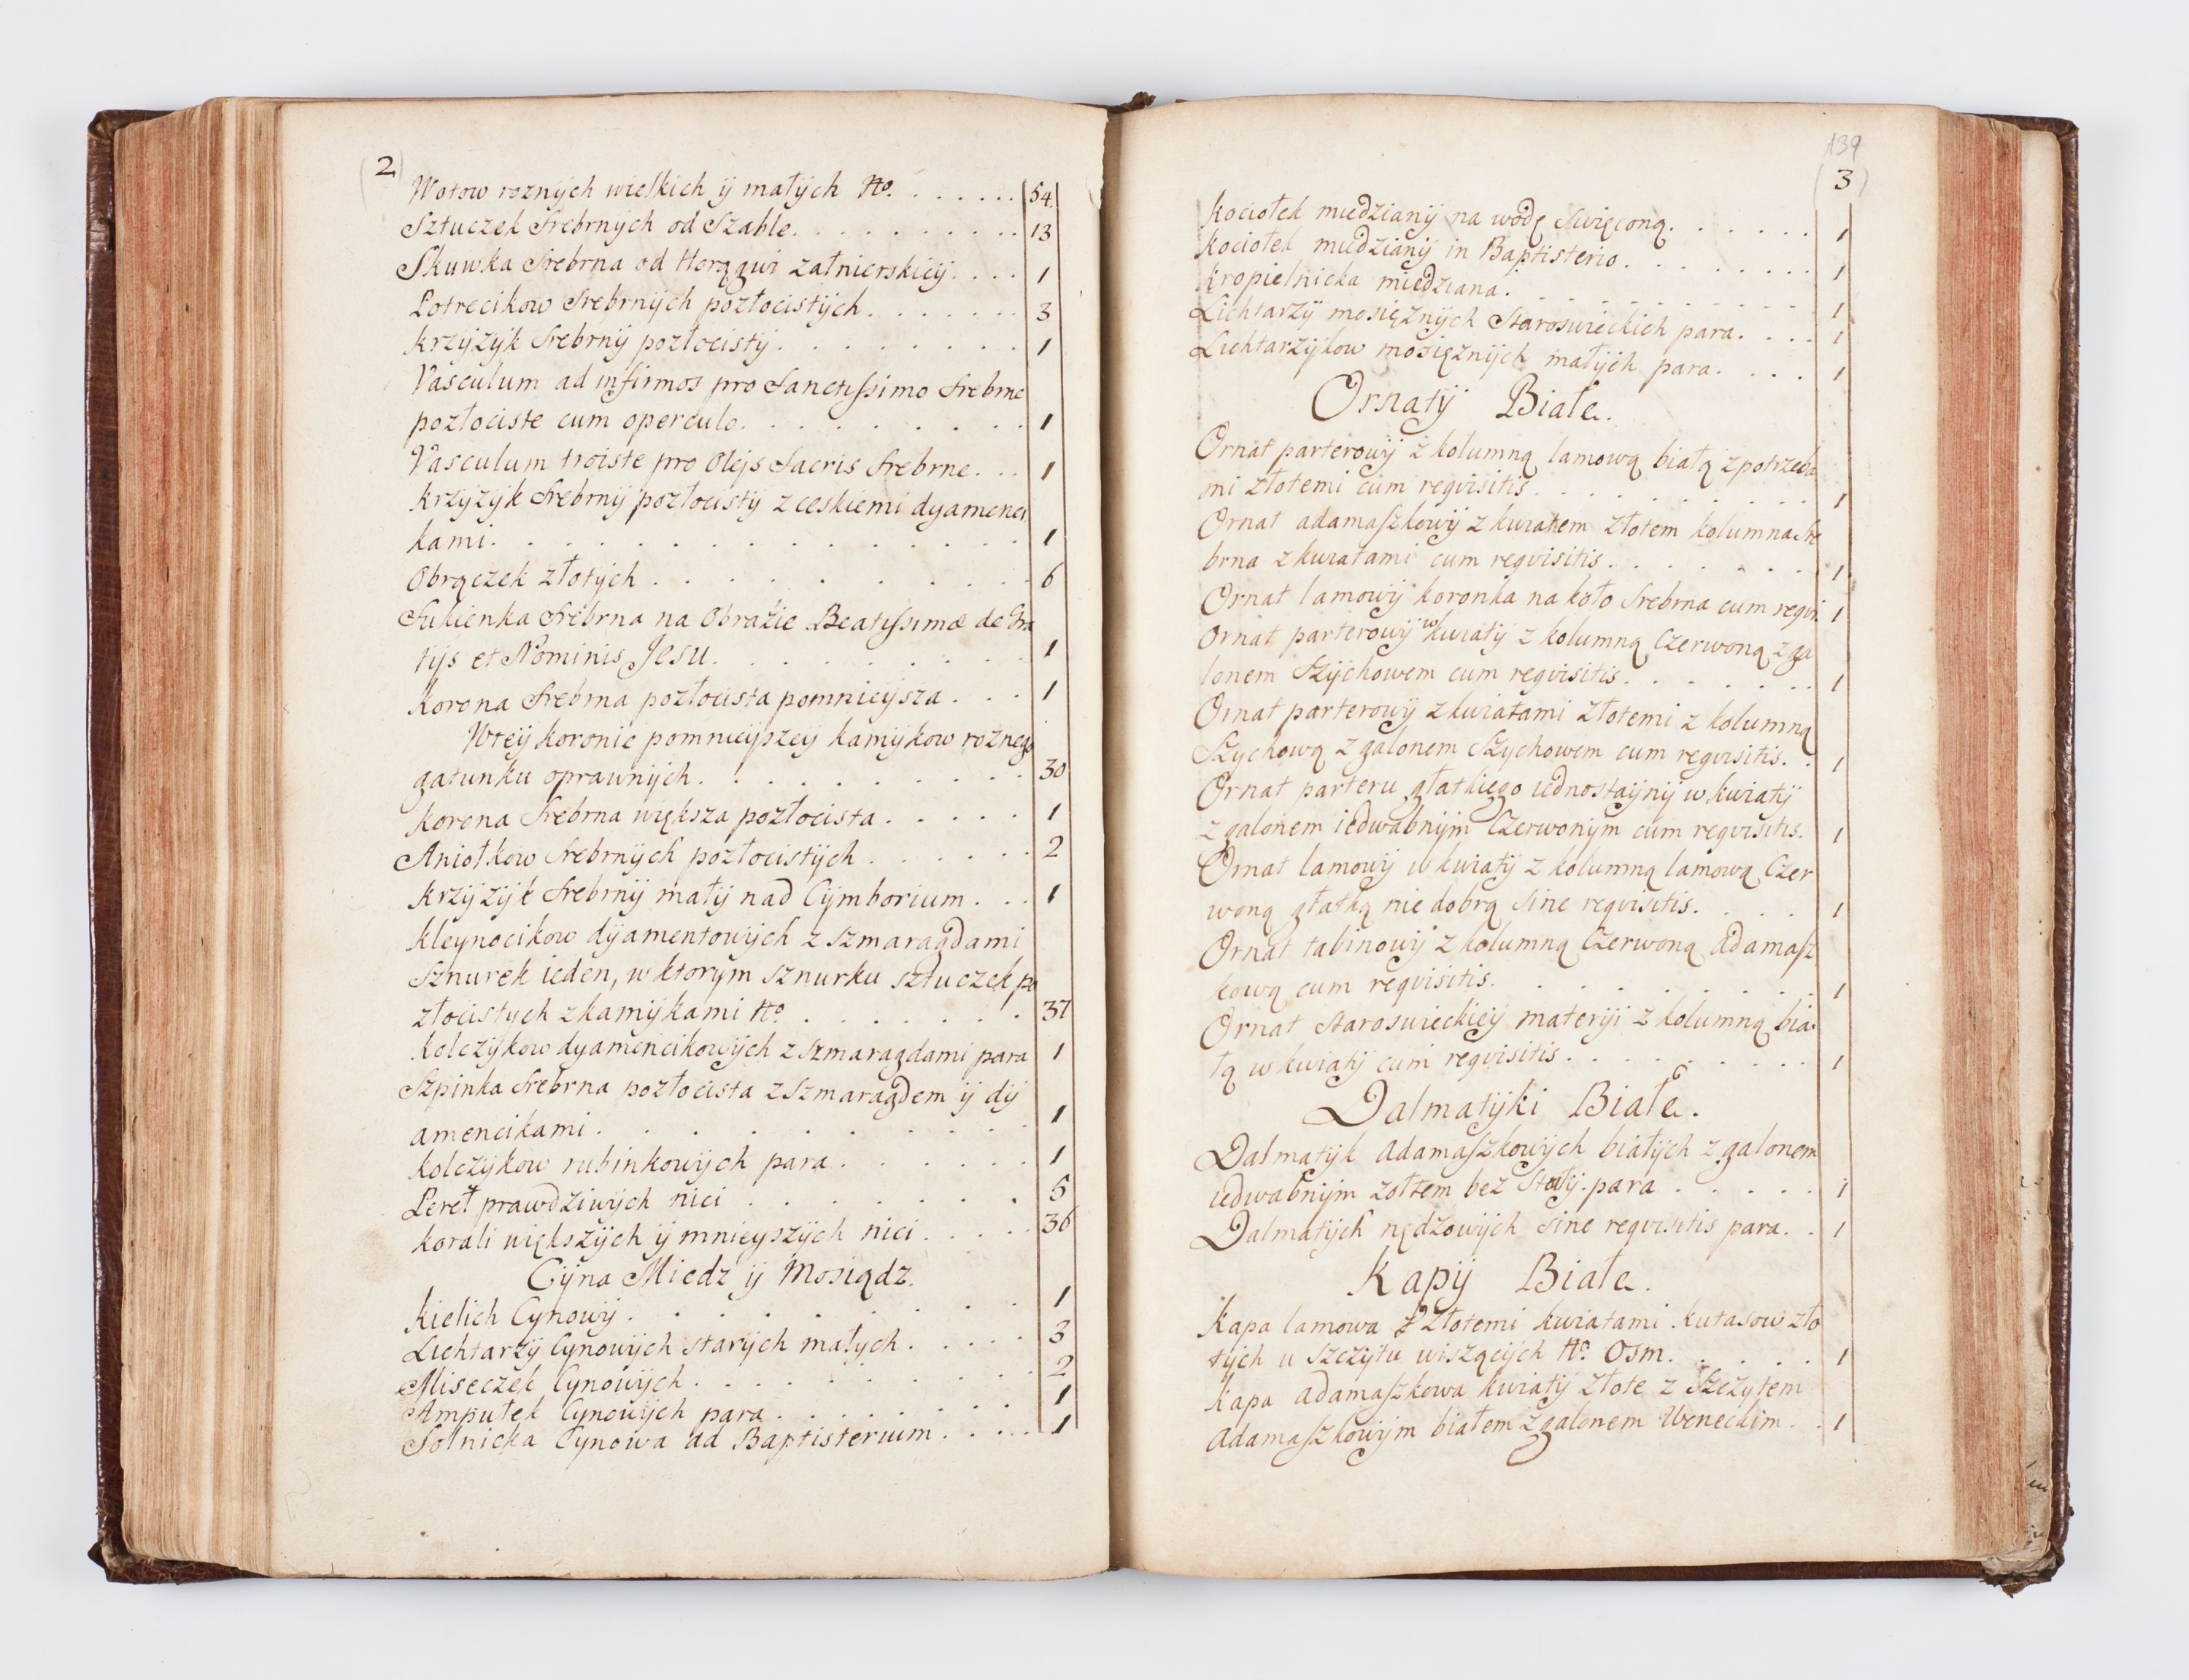 2
Wotow roznÿch wielkich ÿ małÿch No. 54.
Sztuczek Srebrnÿch od Szable. 13
Skuwka Srebrna od Horągwi załnierskieÿ. 1
Potrecikow Srebrnÿch pozłocistÿch. 3
Krzÿżÿk Srebrnÿ pozłocistÿ. 1
Vasculum ad infirmos pro Sanctissimo Srebrne
pozłociste cum operculo. 1
Vasculum troiste pro Olejs Sacris Srebrne. 1
Krzÿżÿk Srebrnÿ pozłocistÿ z ceskiemi dyamenci
kami. 1
Obrączek złotÿch. 6
Sukienka Srebrna na Obrazie Beatissimæ de Gra
tijs et Nominis Jesu. 1
Korona Srebrna pozłocista pomnieÿsza. 1
Wteÿ koronie pomnieÿszey kamÿkow roznego
gatunku oprawnÿch. 30
Korona Srebrna większa pozłocista. 1
Aniołkow Srebrnÿch pozłocistÿch. 2
Krzÿżÿk Srebrnÿ małÿ nad Cÿmborium. 1
Kleynocikow dÿamentowÿch z szmaragdami
Sznurek ieden, w ktorÿm sznurku sztuczek po
złocistych z kamÿkami No. 37
Kolczÿkow dyamencikowÿch z szmaragdami para 1
Szpinka Srebrna pozłocista z Szmaragdem ÿ dÿ
amencikami. 1
Kolczÿkow rubinkowÿch para. 1
Pereł prawdziwÿch nici. 5
Korali większÿch ÿ mnieyszÿch nici. 36
Cÿna Miedz ÿ Mosiądz.
Kielich Cynowÿ. 1
Lichtarzÿ Cynowÿch starÿch małych. 3
Miseczek Cynowÿch. 2
Ampułek Cynowÿch para. 1
Solnicka Cynowa ad Baptisterium. 1
139
3
Kociołek miedzianÿ na wodę Swięconą. 1
Kociołek miedzianÿ in Baptisterio. 1
Kropielnicka miedziana. 1
Lichtarzÿ mosiężnÿch Staroswieckich para. 1
Lichtarzÿkow mosiężnÿch małÿch para. 1
Ornatÿ Białe.
Ornat parterowÿ z kolumną lamową białą z potrzeba
mi złotemi cum reqvisitis. 1
Ornat adamaszkowÿ z kwiatem złotem kolumna Sre
brna z kwiatami cum reqvisitis. 1
Ornat lamowÿ koronka na koło Srebrna cum reqvi. 1
Ornat parterowÿ w kwiatÿ z kolumną Czerwoną z ga
lonem Szÿchowem cum reqvisitis. 1
Ornat parterowÿ z kwiatami złotemi z kolumną
Szychową z galonem Szychowem cum reqvisitis. 1
Ornat parteru głatkiego iednostaÿnÿ w kwiatÿ
z galonem iedwabnÿm Czerwonÿm cum reqvisitis. 1
Ornat lamowÿ w kwiatÿ z kolumną lamową Czer
woną głatką nie dobrą Sine reqvisitis. 1
Ornat tabinowÿ z kolumną Czerwoną Adamasz
kową cum reqvisitis. 1
Ornat staroswieckieÿ materÿi z kolumną bia-
łą w kwiatÿ cum reqvisitis. 1
Dalmatÿki Białe.
Dalmatÿk Adamaszkowÿch białÿch z galonem
iedwabnÿm zołtem bez Stuły para. 1
Dalmatÿch nędzowÿch Sine reqvisitis para. 1
Kapÿ Białe.
Kapa lamowa z złotemi kwiatami kutasow zło
tÿch u szczÿtu wiszącÿch No. Osm. 1
Kapa Adamaszkowa kwiatÿ złote z Szczÿtem
Adamaszkowÿm białem z galonem Weneckim. 1